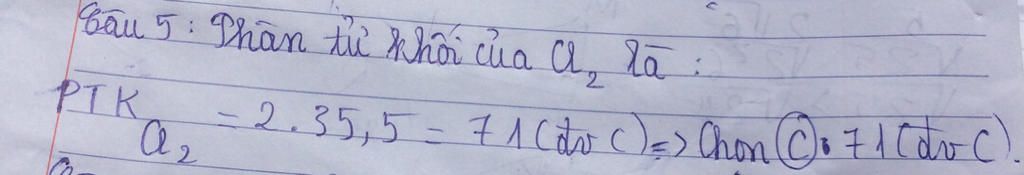 Câu 5: Phân tử khối của Cl₂ là :
PTK Cl₂ = 2.35,5 = 71 (đvC) => Chọn C. 71 (đvC).